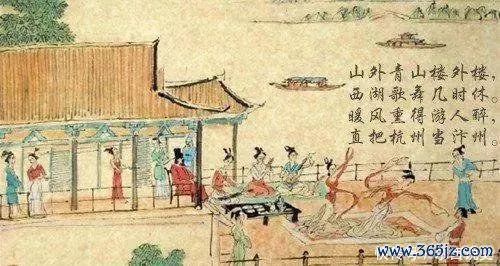 山外青山楼外楼，
西湖歌舞几时休。
暖风熏得游人醉，
直把杭州当汴州。
www.365jz.com